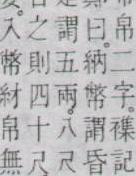 帛二字襍記
鄭曰。納幣謂昏
謂五兩。八尺
之則四十尺
入幣紂帛無